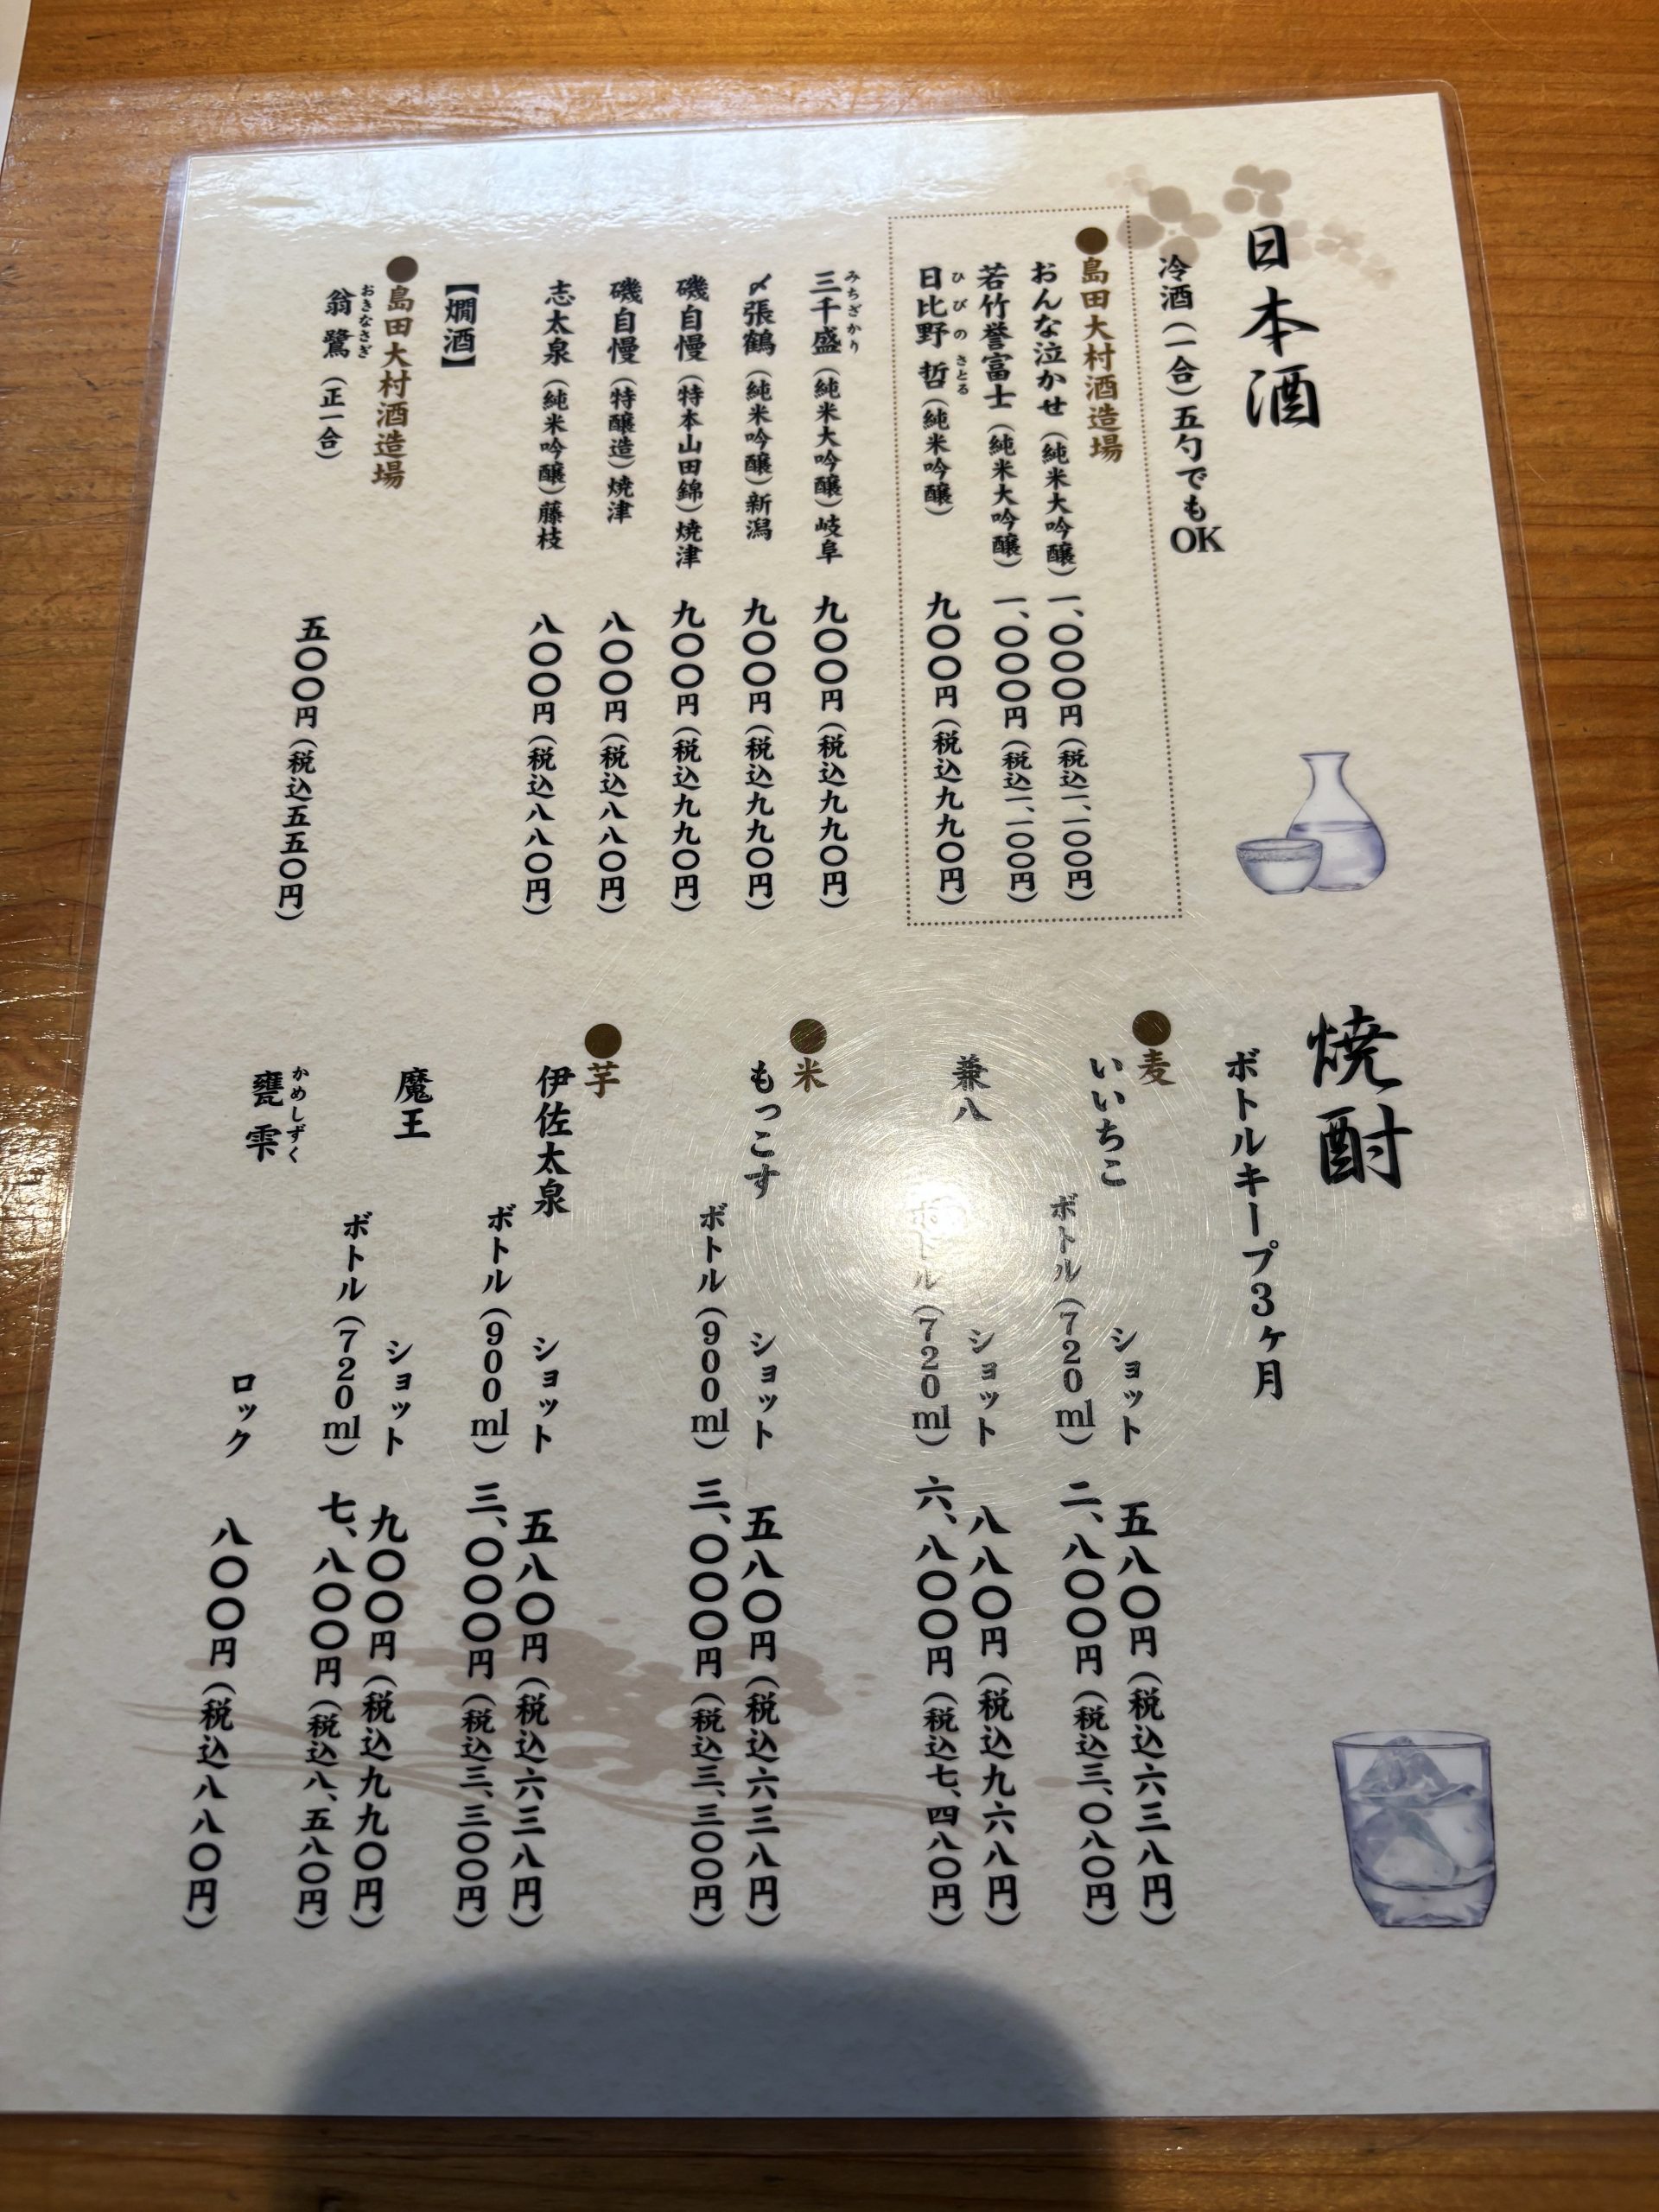 日本酒
冷酒（一合）五勺でもOK
●島田大村酒造場
おんな泣かせ（純米大吟醸）一、〇〇〇円（税込一、一〇〇円）
若竹誉富士（純米大吟醸）一、〇〇〇円（税込一、一〇〇円）
日比野 哲（純米吟醸）九〇〇円（税込九九〇円）
ひびの さとる
三千盛（純米大吟醸）岐阜 九〇〇円（税込九九〇円）
みちざかり
〆張鶴（純米吟醸）新潟 九〇〇円（税込九九〇円）
磯自慢（特本山田錦）焼津 九〇〇円（税込九九〇円）
磯自慢（特醸造）焼津 八〇〇円（税込八八〇円）
志太泉（純米吟醸）藤枝 八〇〇円（税込八八〇円）
【燗酒】
●島田大村酒造場
翁鷺（正一合）五〇〇円（税込五五〇円）
おきなさぎ
焼酎
ボトルキープ3ヶ月
●麦
いいちこ ショット 五八〇円（税込六三八円）
ボトル（720ml）二、八〇〇円（税込三、〇八〇円）
兼八 ショット 八八〇円（税込九六八円）
ボトル（720ml）六、八〇〇円（税込七、四八〇円）
●米
もっこす ショット 五八〇円（税込六三八円）
ボトル（900ml）三、〇〇〇円（税込三、三〇〇円）
●芋
伊佐太泉 ショット 五八〇円（税込六三八円）
ボトル（900ml）三、〇〇〇円（税込三、三〇〇円）
魔王 ショット 九〇〇円（税込九九〇円）
ボトル（720ml）七、八〇〇円（税込八、五八〇円）
甕雫 ロック 八〇〇円（税込八八〇円）
かめしずく